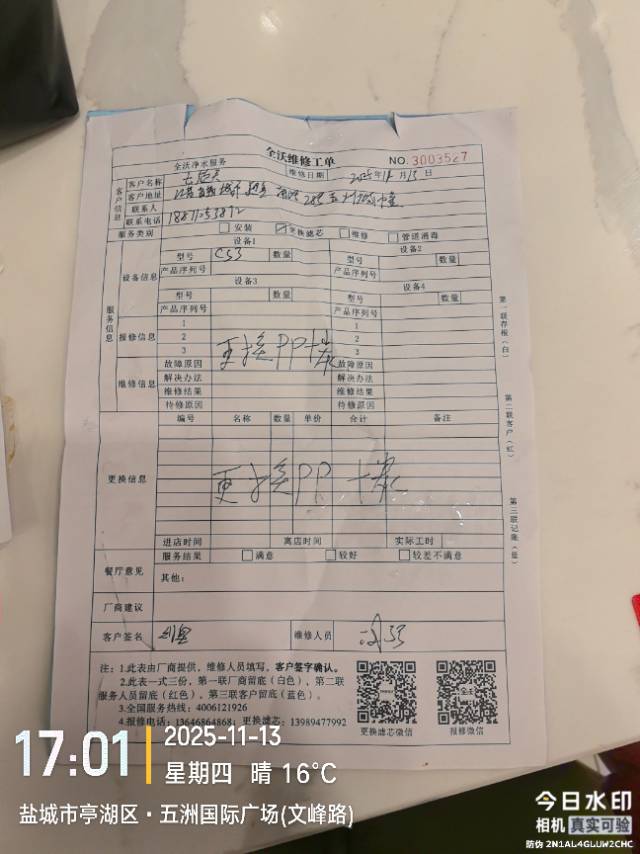 全沃维修工单
全沃净水服务 维修日期 2025年11月13日 NO. 3003527
客户信息
客户名称
客户地址
联系人
联系电话
服务类别 安装 更换滤芯 维修 管道消毒
服务信息
设备信息
设备1 设备2
型号 C53 数量 型号 数量
产品序列号 产品序列号
设备3 设备4
型号 数量 型号 数量
产品序列号 产品序列号
报修信息
1 1
2 2
3 3
更换PP+炭
维修信息
故障原因 故障原因
解决办法 解决办法
维修结果 维修结果
待修原因 待修原因
更换信息
编号 名称 数量 单价 合计 备注
更换PP+炭
进店时间 离店时间 实际工时
餐厅意见
服务结果 满意 较好 较差不满意
其他：
厂商建议
客户签名 维修人员
注：1.此表由厂商提供，维修人员填写，客户签字确认。
2.此表一式三份，第一联厂商留底（白色），第二联
服务人员留底（红色），第三联客户留底（蓝色）。
3.全国服务热线：4006121926
4.报修电话：13646864868；更换滤芯：13989477992
更换滤芯微信 报修微信
第一联存根（白）
第二联客户（红）
第三联记账（蓝）
17:01
2025-11-13
星期四 晴 16°C
盐城市亭湖区·五洲国际广场(文峰路)
今日水印
相机 真实可验
防伪 2N1AL4GLUW2CHC